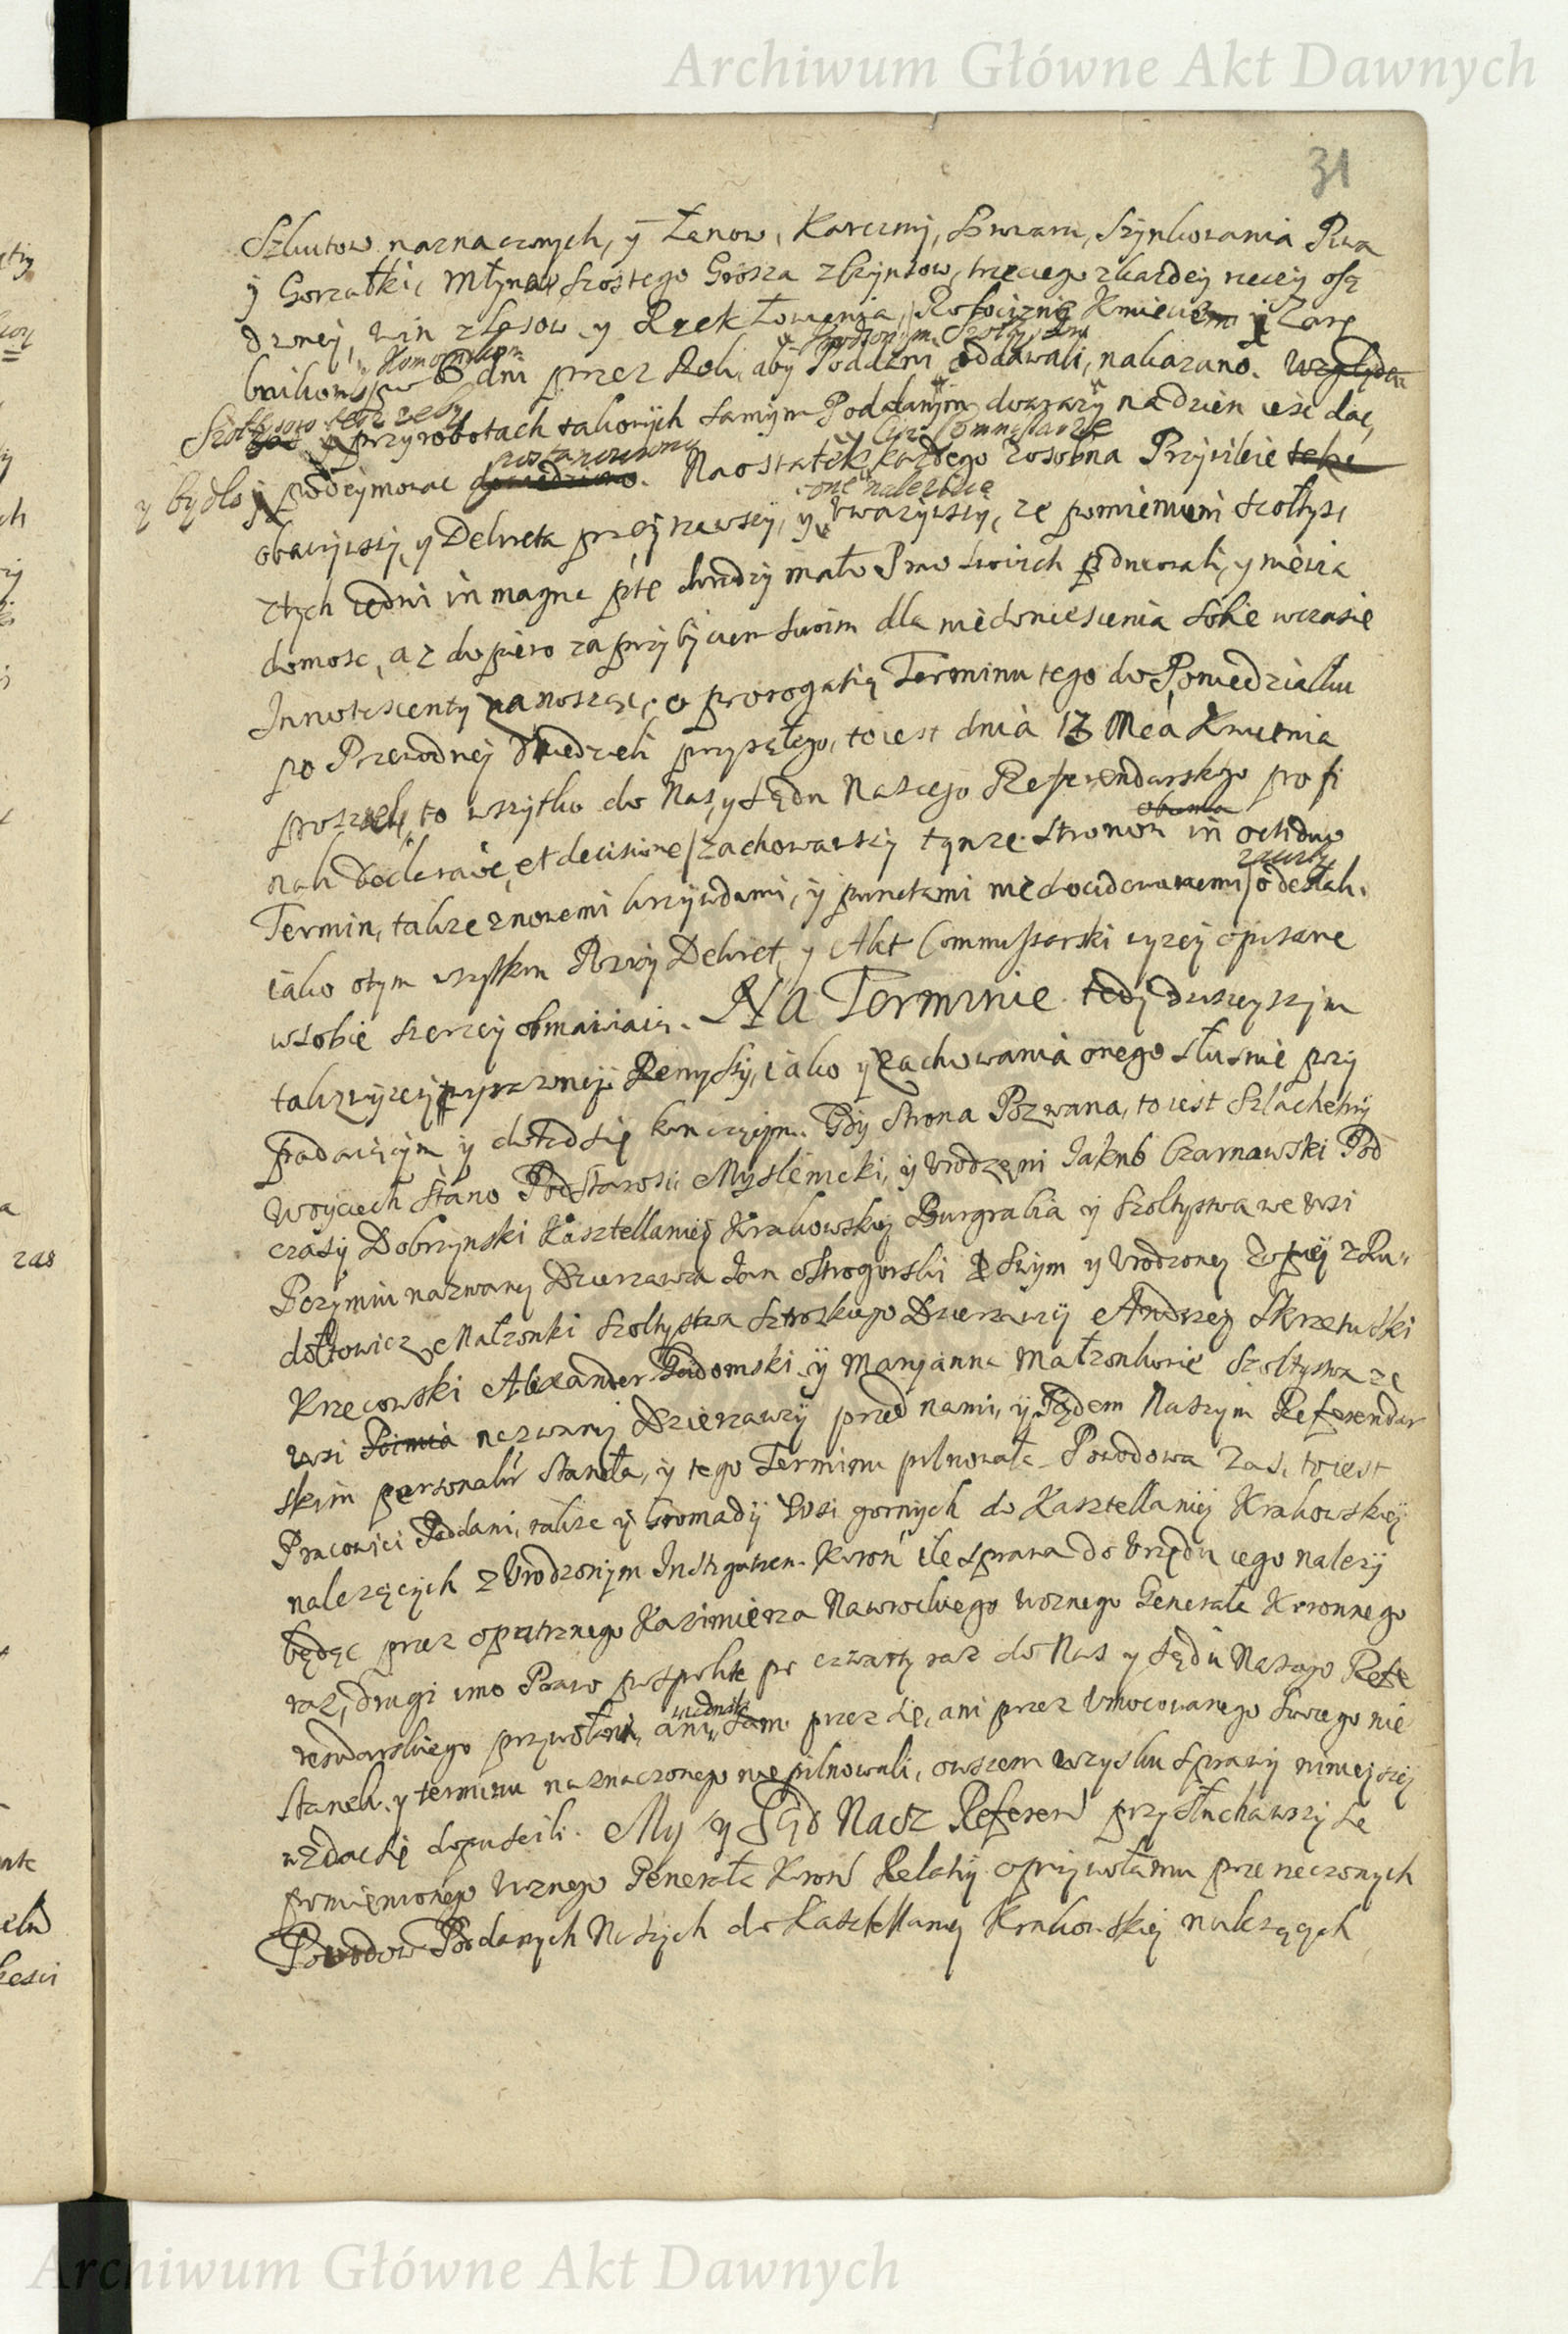 Archiwum Główne Akt Dawnych
31
Szlutow naznaczonych, y Łanow, Karczmy, Browaru, Szynkowania Piwa
y Gorzałki, Młynow, szostego Grosza z Czynszow, trzeciego z kazdey rzeczy osą
dzoney, win z Lasow y Rzek Łowienia, Robocizny Kmieciem y Zarę
Komornikom Urodzonym Szołtysom
bnikom po 6 dni przez Rok, aby Poddani oddawali, nakazano. Względem
Szołtysow tesz zeby
przy robotach takowych samym Poddanym dwa razy na dzien iesc dac,
postanowiono Ciz Commissarze
y bydło podeymowac. Na ostatek kazdego zosobna Przywileie
one nalezycie
obaczywszy, y Dekreta przeyrzawszy, y uwazywszy, ze pomienieni Szołtysi
z tych iedni in magna pte dowodzy mało Praw swoich produkowali, y niewia
domosc, az dopiero za przybyciem swoim dla niedoniesienia sobie wczasie
Innotescenty zanosząc, o prorogatią Terminu tego do Poniedziałku
po Przewodney Niedzieli przyszłego, to iest dnia 13 Mca Kwietnia
prosieli, to wszytko do Nas, y Sądu Naszego Referendarskiego pro fi
obuma
nali declaraoe, et decisione zachowawszy tymze stronom in octiduo
zawity
Termin, takze z nowemi krzywdami, y punctami niedocidowanemi odesłali.
iako o tym wszytkim Pozwy Dekret, y Akt Commissarski wyzey opisane
w sobie szerzey obmawiaią. Na Terminie tedy dzisieyszym
tak z wyzey wyrazoney Remyssy, iako y zachowania onego słusnie przy
padaiącym y dotąd się konczącym. Gdy strona Pozwana, to iest Szlachetny
Woyciech Stano Podstarosci Myslenicki, y Urodzeni Jakub Czarnawski Pod
czasy Dobrzynski Kasztellaniey Krakowskiey Burgrabia y Szołtystwa we wsi
nazwaney Dzierzawca Jan Ostrogorski Swym y Urodzoney Zofiey z Ru
dołtowicz Małzonki Szołtystwa Strozkiego Dzierzawcy Andrzey Skrzetuski
Krzecowski Alexander Gadomski y Maryanna Małzonkowie Szołtystwa ze
wsi nazwany Dzierzawcy przed nami, y Sądem Naszym Referendar
skim personalr staneła, y tego Terminu pilnowała. Powodowa zas, to iest
Pracowici Poddani, takze y Gromady Wsi gornych do Kasztellaniey Krakowskiey
nalezących z Urodzonym Instigatorem Koron ile sprawa do Urzędu iego nalezy
będąc przez opatrznego Kazimierza Nawrockiego woznego Generała Koronnego
raz, drugi imo Prawo pospolite po czwarty raz do Nas y Sądu Naszego Refe
rendarskiego przywołani, ani sami przez się, ani przez Umocowanego swego nie
staneli, y terminu naznaczonego nie pilnowali, owszem wzysku sprawy ninieyszey
wzdac się dopuscili. My y Sąd Nasz Referend przysłuchawszy sę
pomienionego Woznego Generała Koron Relatiy o przywołaniu przerzeczonych
Powodow Poddanych Naszych do Kasztellaniey Krakowskiey nalezących
Archiwum Główne Akt Dawnych